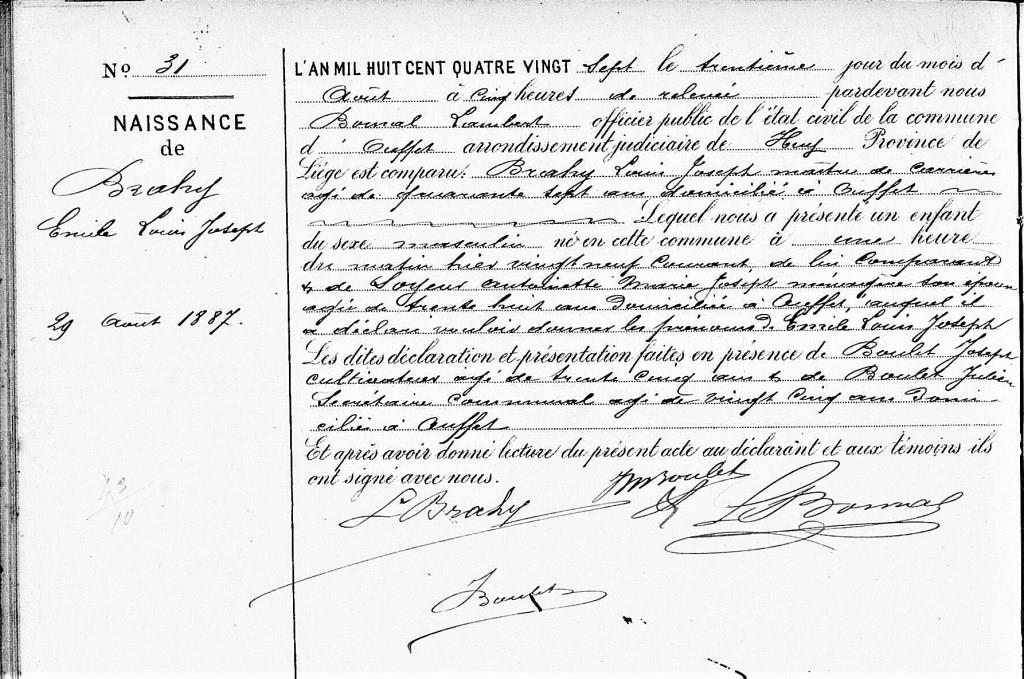 No 31
NAISSANCE
de
Brahy
Emile Louis Joseph
29 Août 1887.
L'AN MIL HUIT CENT QUATRE VINGT Sept le trentième jour du mois d'
Août à cinq heures de relevée pardevant nous
Bomal Lambert officier public de l'état civil de la commune
d'Ouffet arrondissement judiciaire de Huy Province de
Liège est comparu: Brahy Louis Joseph maître de carrières
agé de quarante sept ans domicilié à Ouffet
Lequel nous a présenté un enfant
du sexe masculin né en cette commune à une heure
du matin hier vingt neuf courant, de lui comparant
& de Loyeux Antoinette Marie Joseph ménagère son épouse
agée de trente huit ans domiciliée à Ouffet, auquel il
a déclaré vouloir donner les prénoms d'Emile Louis Joseph
Les dites déclaration et présentation faites en présence de Boulet Joseph
cultivateur agé de trente cinq ans & de Boulet Julien
Secrétaire communal agé de vingt cinq ans domi-
ciliés à Ouffet
Et après avoir donné lecture du présent acte au déclarant et aux témoins ils
ont signé avec nous.
Boulet
L Brahy L Bomal
Boulet